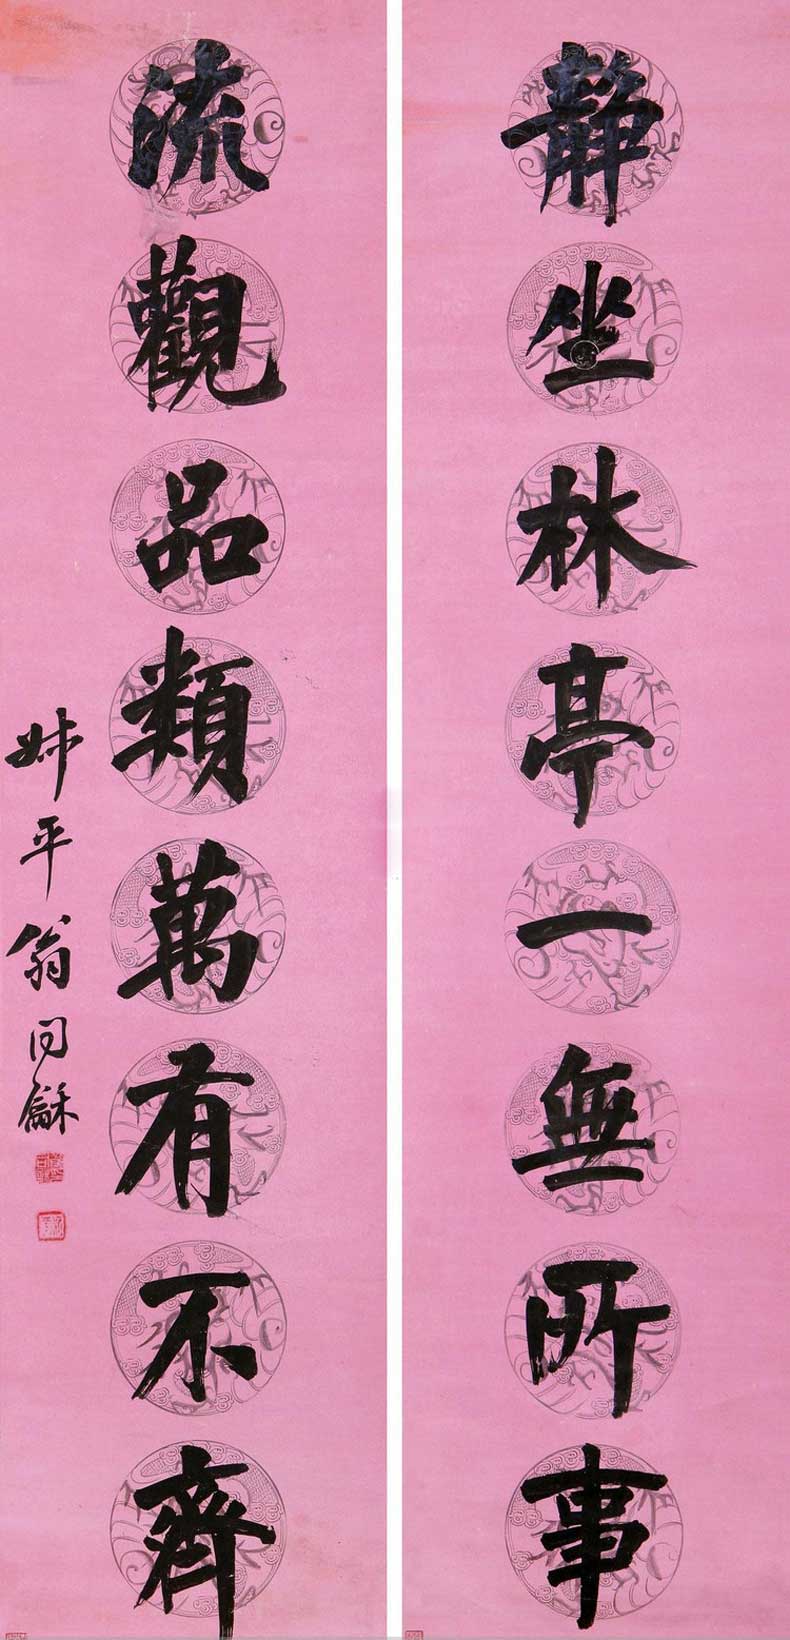 靜坐林亭一無所事
流觀品類萬有不齊
叔平翁同龢